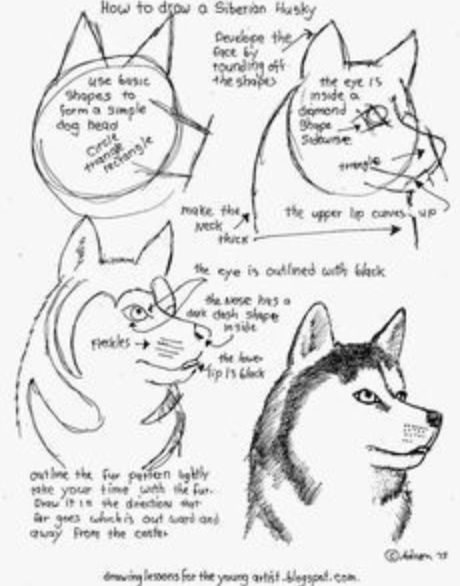 How to draw a Siberian Husky
use basic
shapes to
form a simple
dog head
Circle
triangle
rectangle
Develope the
face by
rounding off
the shapes
the eye is
inside a
diamond
shape
sidewise
triangle
make the
neck
thick
the upper lip curves up
the eye is outlined with black
the nose has a
dark dash shape
inside
freckles
the lower
lip is black
outline the fur pattern lightly
take your time with the fur.
Draw it in the direction that
fur goes which is out ward and
away from the center
©
drawinglessonsfortheyoungartist.blogspot.com.